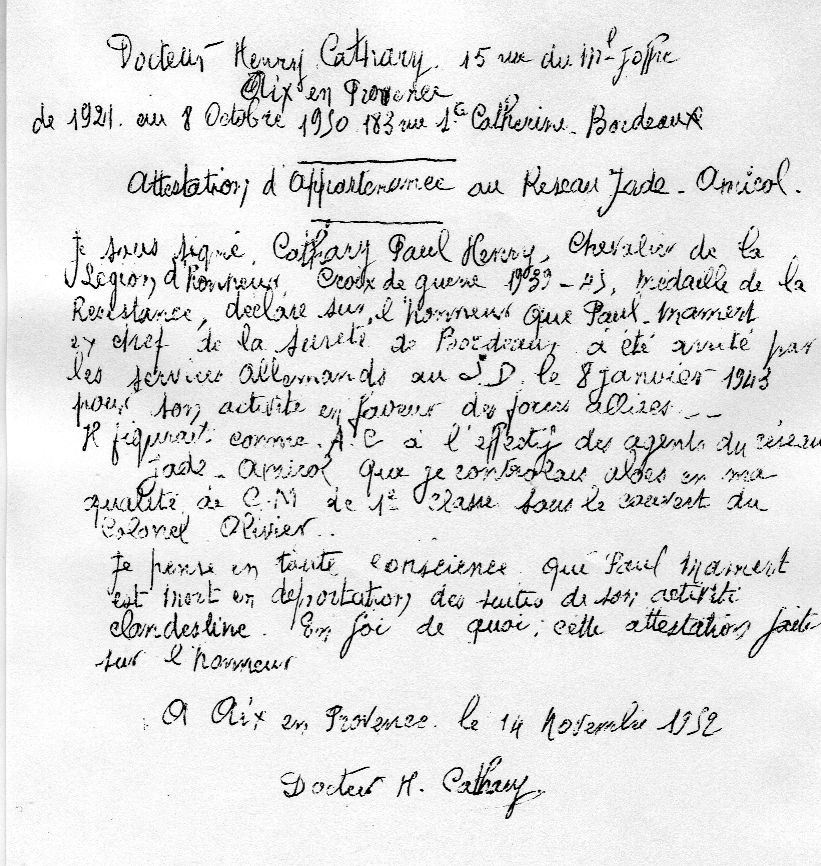 Docteur Henry Cathary. 15 rue du Ml Joffre
Aix en Provence
de 1921. au 8 Octobre 1950 183 rue Ste Catherine. Bordeaux
Attestation d'Appartenance au Reseau Jade - Amicol.
Je sous signé, Cathary Paul Henry, Chevalier de la
Légion d'honneur, Croix de guerre 1939-45, Médaille de la
Resistance, déclare sur l'honneur que Paul Mamert
ex chef de la sureté de Bordeaux a été arrêté par
les services Allemands au S.D. le 8 janvier 1943
pour son activité en faveur des forces alliées --
Il figurait comme A.C à l'effectif des agents du réseau
Jade - Amicol que je controlais alors en ma
qualité de C.M de 1re classe sous le couvert du
Colonel Olivier..
Je pense en toute conscience que Paul Mamert
est mort en déportation des suites de son activité
clandestine. En foi de quoi, cette attestation faite
sur l'honneur
A Aix en Provence. le 14 Novembre 1952
Docteur H. Cathary